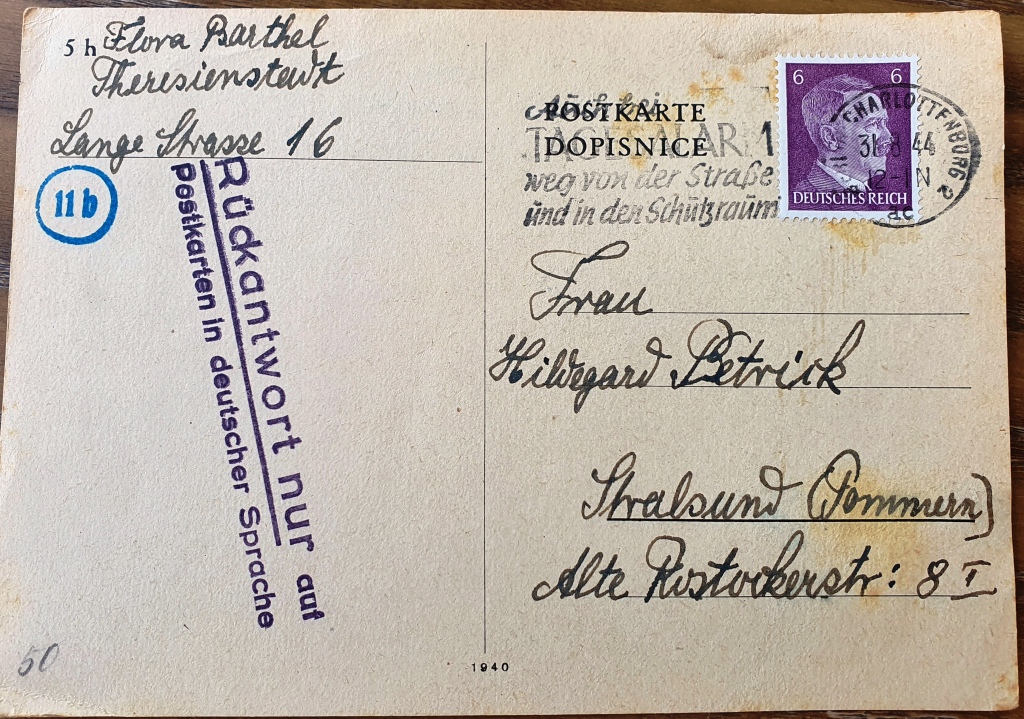 5 h Flora Barthel
Theresienstadt
Lange Strasse 16
11b
Rückantwort nur auf
Postkarten in deutscher Sprache
50
POSTKARTE
DOPISNICE
Auch bei
TAGESALARM
weg von der Straße
und in den Schutzraum
6 6
DEUTSCHES REICH
CHARLOTTENBURG 2
31.8.44
12- N
ac
Frau
Hildegard Betrick
Stralsund (Pommern)
Alte Rostockerstr: 8 I
1940